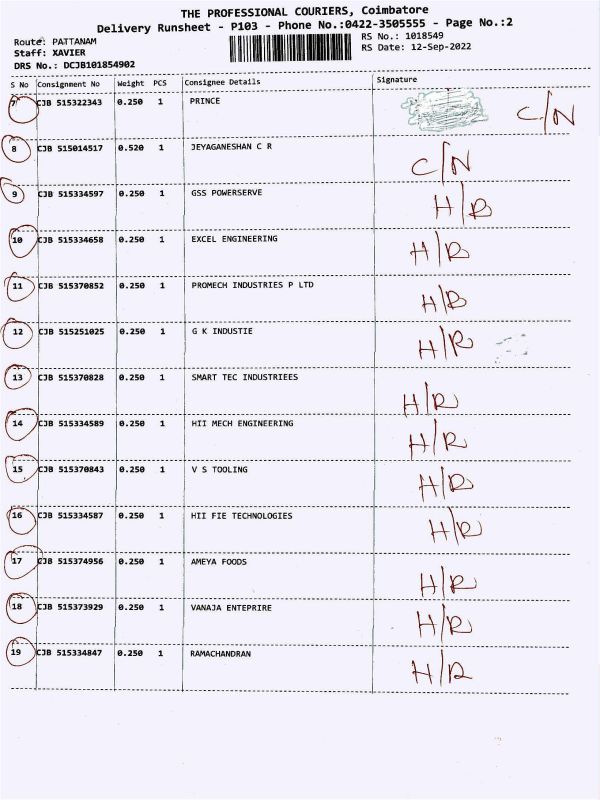 THE PROFESSIONAL COURIERS, Coimbatore
Delivery Runsheet - P103 - Phone No.:0422-3505555 - Page No.:2
Route: PATTANAM
RS No.: 1018549
Staff: XAVIER
RS Date: 12-Sep-2022
DRS No.: DCJB101854902
S No Consignment No Weight PCS Consignee Details Signature
7 CJB 515322343 0.250 1 PRINCE C/N
8 CJB 515014517 0.520 1 JEYAGANESHAN C R C/N
9 CJB 515334597 0.250 1 GSS POWERSERVE H/R
10 CJB 515334658 0.250 1 EXCEL ENGINEERING H/R
11 CJB 515370852 0.250 1 PROMECH INDUSTRIES P LTD H/R
12 CJB 515251025 0.250 1 G K INDUSTIE H/R
13 CJB 515370828 0.250 1 SMART TEC INDUSTRIEES H/R
14 CJB 515334589 0.250 1 HII MECH ENGINEERING H/R
15 CJB 515370843 0.250 1 V S TOOLING H/R
16 CJB 515334587 0.250 1 HII FIE TECHNOLOGIES H/R
17 CJB 515374956 0.250 1 AMEYA FOODS H/R
18 CJB 515373929 0.250 1 VANAJA ENTEPRIRE H/R
19 CJB 515334847 0.250 1 RAMACHANDRAN H/R